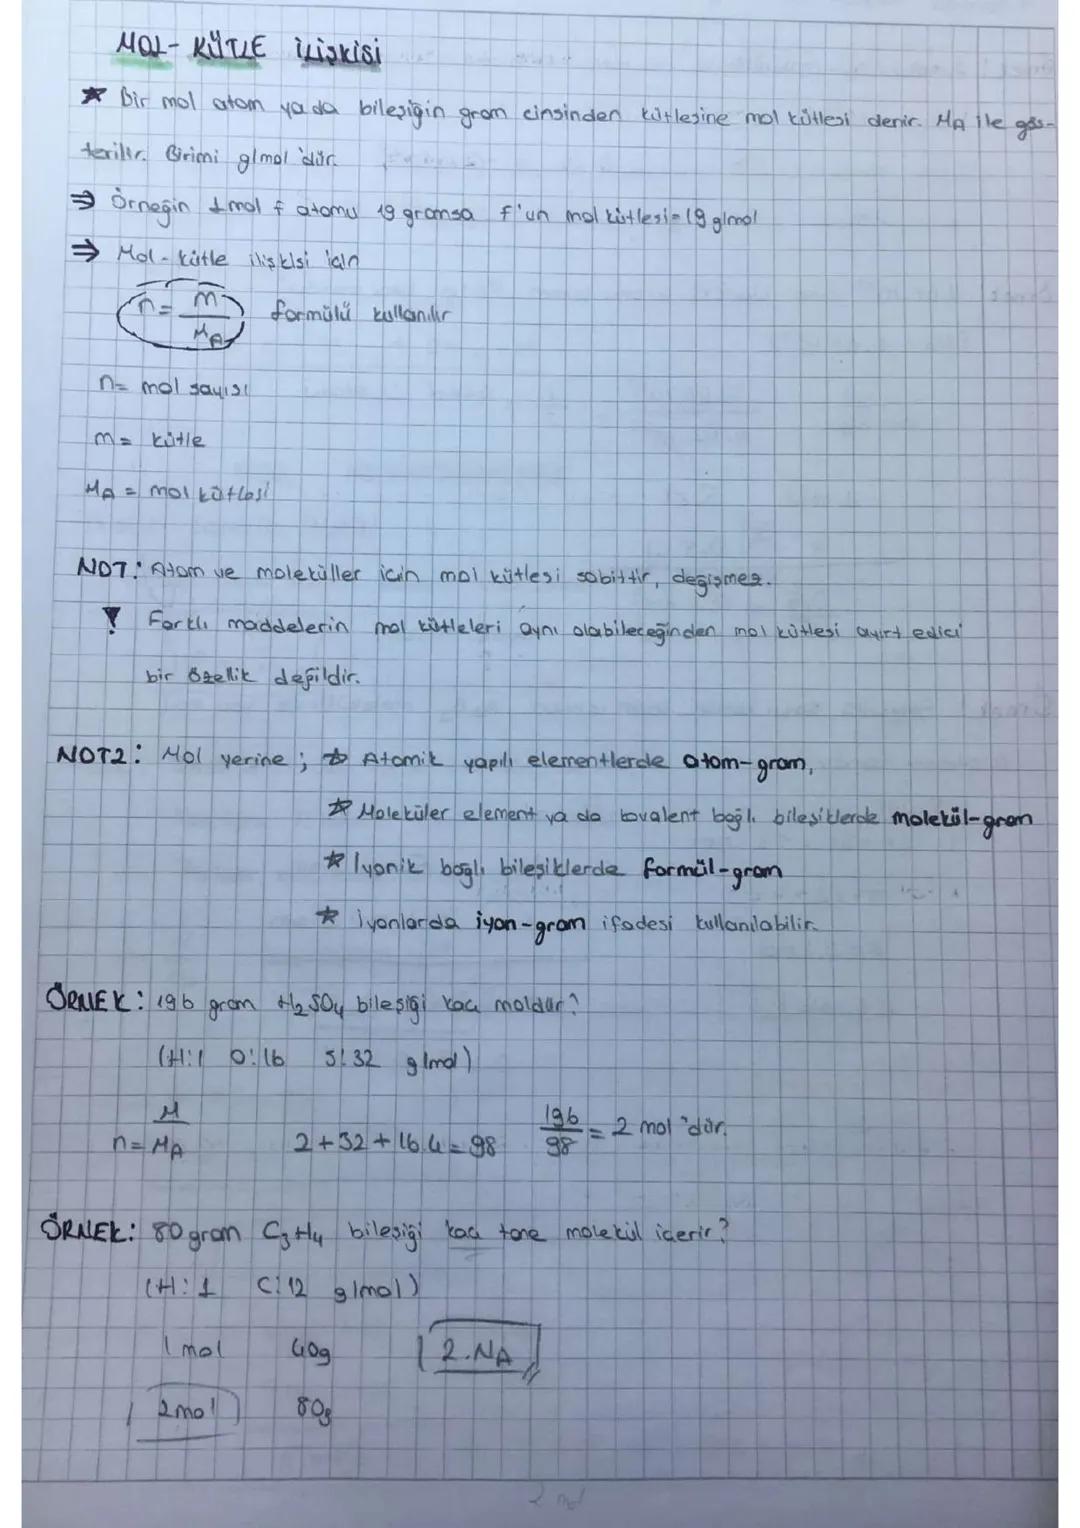 MOL- KÜTLE İLİŞKİSİ
★ Bir mol atom ya da bileşiğin gram cinsinden kütlesine mol kütlesi denir. MA ile gös-
terilir. Birimi g/mol 'dür.
⇒ Örneğin 1 mol f atomu 19 gramsa f'un mol kütlesi = 19 g/mol
⇒ Mol - kütle ilişkisi için
n = m/MA formülü kullanılır
n = mol sayısı
m = kütle
MA = mol kütlesi
NOT: Atom ve moleküller için mol kütlesi sabittir, değişmez.
! Farklı maddelerin mol kütleleri aynı olabileceğinden mol kütlesi ayırt edici
bir özellik değildir.
NOT2: Mol yerine ; ☆ Atomik yapılı elementlerde atom-gram,
☆ Moleküler element ya da kovalent bağlı bileşiklerde molekül-gram
☆ İyonik bağlı bileşiklerde formül-gram
☆ iyonlarda iyon-gram ifadesi kullanılabilir.
ÖRNEK: 196 gram H2SO4 bileşiği kaç moldür?
(H:1 O:16 S:32 g/mol)
n = M/MA 2+32+16.4=98 196/98 = 2 mol 'dür.
ÖRNEK: 80 gram C3H4 bileşiği kaç tane molekül içerir?
(H:1 C:12 g/mol)
1 mol 40g 2.NA
2mol 80g
2 mol